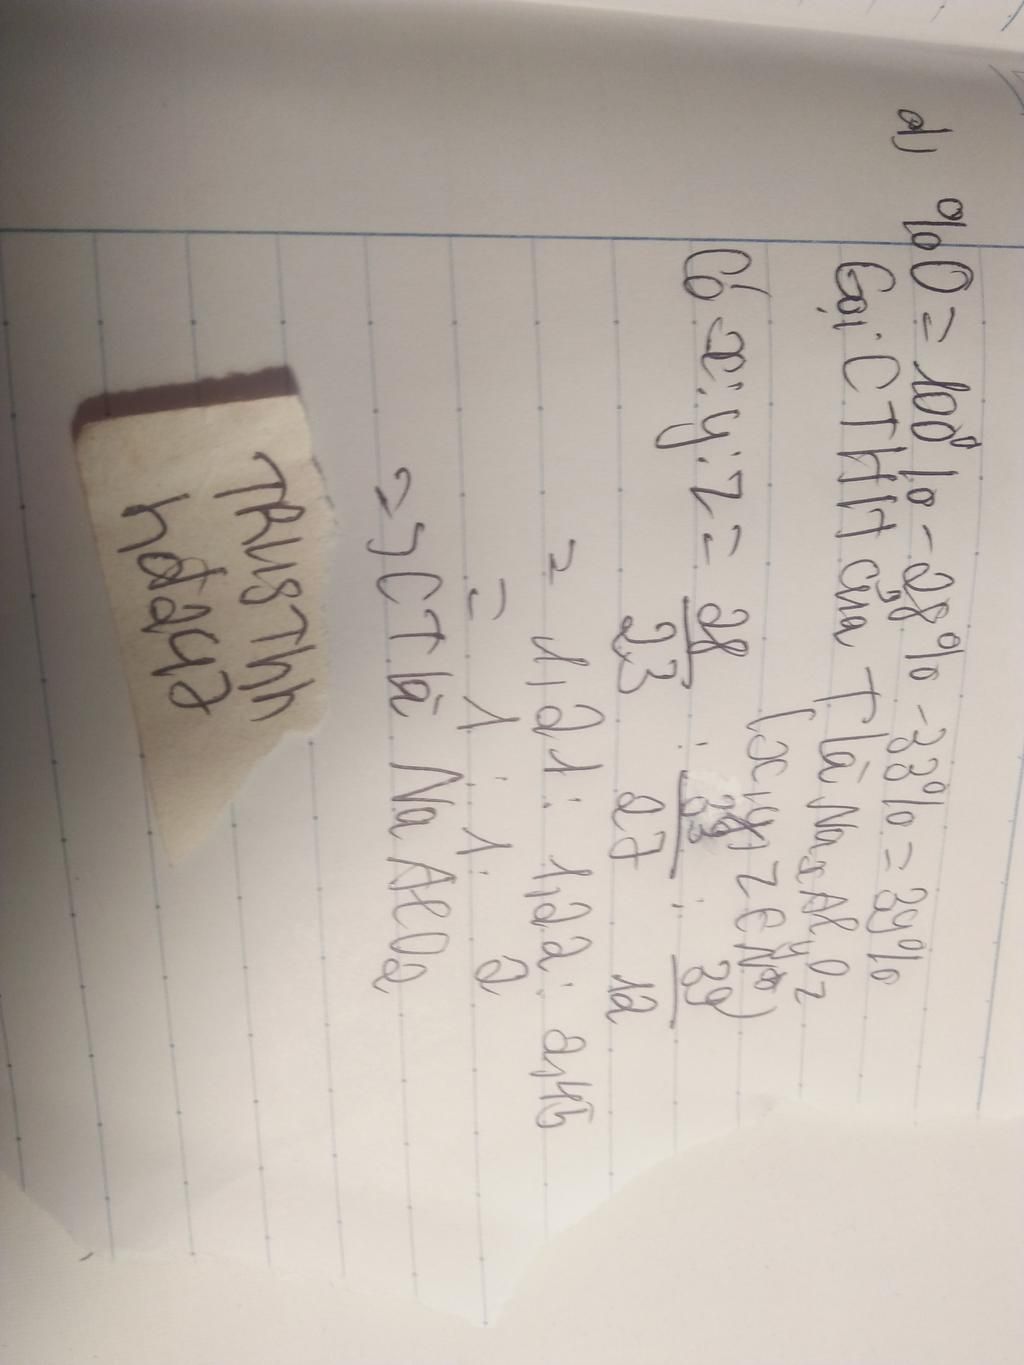 d) %O = 100% - 28% - 33% = 39%
Gọi CTHH của T là NaxAlyOz
(x, y, z ∈ N*)
Có x : y : z = 28/23 : 33/27 : 39/12
= 1,21 : 1,22 : 2,45
= 1 : 1 : 2
=> CT là NaAlO2
TRUSThh
hđ2y7